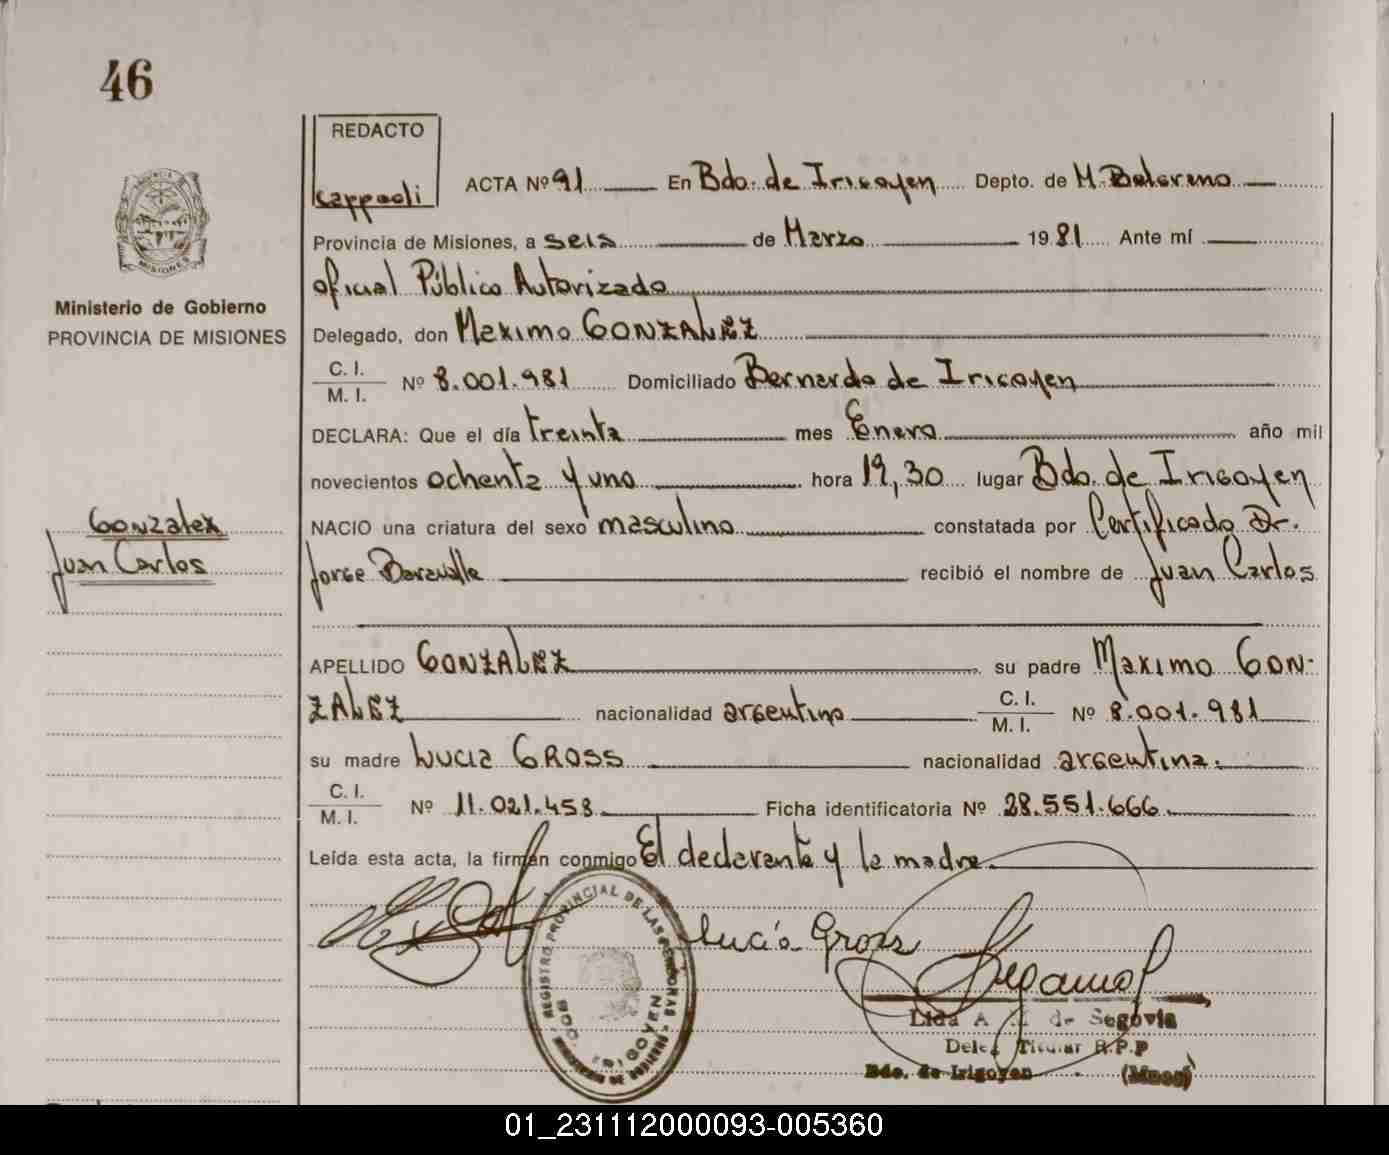 46
REDACTO
Cappaoli
ACTA Nº 91 En Bdo. de Irigoyen Depto. de M. Belgrano
Provincia de Misiones, a seis de Marzo 1981 Ante mí
oficial Público Autorizado
Delegado, don Maximo GONZALEZ
C. I.
M. I.
Nº 8.001.981 Domiciliado Bernardo de Irigoyen
DECLARA: Que el día treinta mes Enero año mil
novecientos ochenta y uno hora 19,30 lugar Bdo. de Irigoyen
NACIO una criatura del sexo masculino constatada por Certificado Dr.
Jorge recibió el nombre de Juan Carlos
APELLIDO GONZALEZ su padre Maximo GON-
ZALEZ nacionalidad argentino C. I.
M. I. Nº 8.001.981
su madre Lucia GROSS nacionalidad argentina.
C. I.
M. I.
Nº 11.021.458 Ficha identificatoria Nº 28.551.666
Leída esta acta, la firman conmigo El declarante y la madre.
Lucía Gross
Lida A de Segovia
Deleg Titular R.P.P
Bdo. de Irigoyen (Mnes)
REGISTRO PROVINCIAL DE LAS PERSONAS
BDO. IRIGOYEN
MINISTERIO DE GOBIERNO
MISIONES
Ministerio de Gobierno
PROVINCIA DE MISIONES
Gonzalez
Juan Carlos
01_231112000093-005360